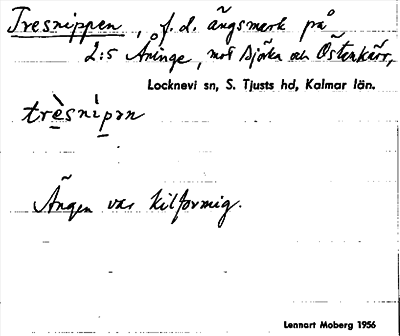 Tresnippen, f.d. ängsmark på
2:5 Åninge, mot Björka och Östenkärr,
Locknevi sn, S. Tjusts hd, Kalmar län.
trèsnìpən
Ängen var kilformig.
Lennart Moberg 1956